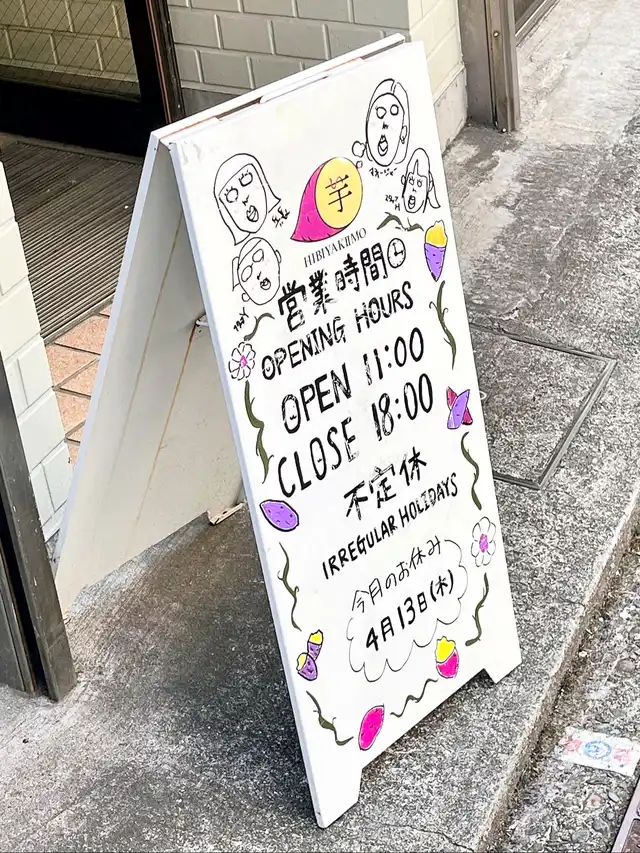 芋
HIBIYAKIIMO
営業時間
OPENING HOURS
OPEN 11:00
CLOSE 18:00
不定休
IRREGULAR HOLIDAYS
今月のお休み
4月13日(木)